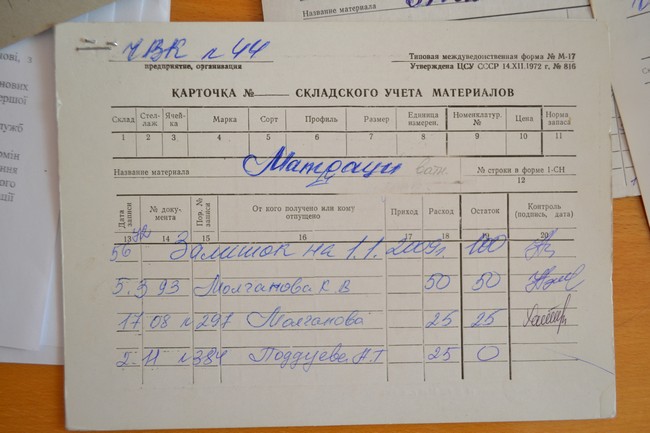 Название материала
УВК № 44
предприятие, организация
Типовая междуведомственная форма № М-17
Утверждена ЦСУ СССР 14.XII.1972 г. № 816
КАРТОЧКА № СКЛАДСКОГО УЧЕТА МАТЕРИАЛОВ
Склад Стел-лаж Ячей-ка Марка Сорт Профиль Размер Единица измерен. Номенклатур. № Цена Норма запаса
1 2 3 4 5 6 7 8 9 10 11
Название материала Матраци ват. № строки в форме 1-СН
12
Дата записи № доку-мента Пор. № записи От кого получено или кому отпущено Приход Расход Остаток Контроль (подпись, дата)
13 14 15 16 17 18 19 20
56 Залишок на 1.1.2009г. 100
5.3 93 Молганова К В 50 50
17 08 № 297 Молганова 25 25
11 № 384 25 0